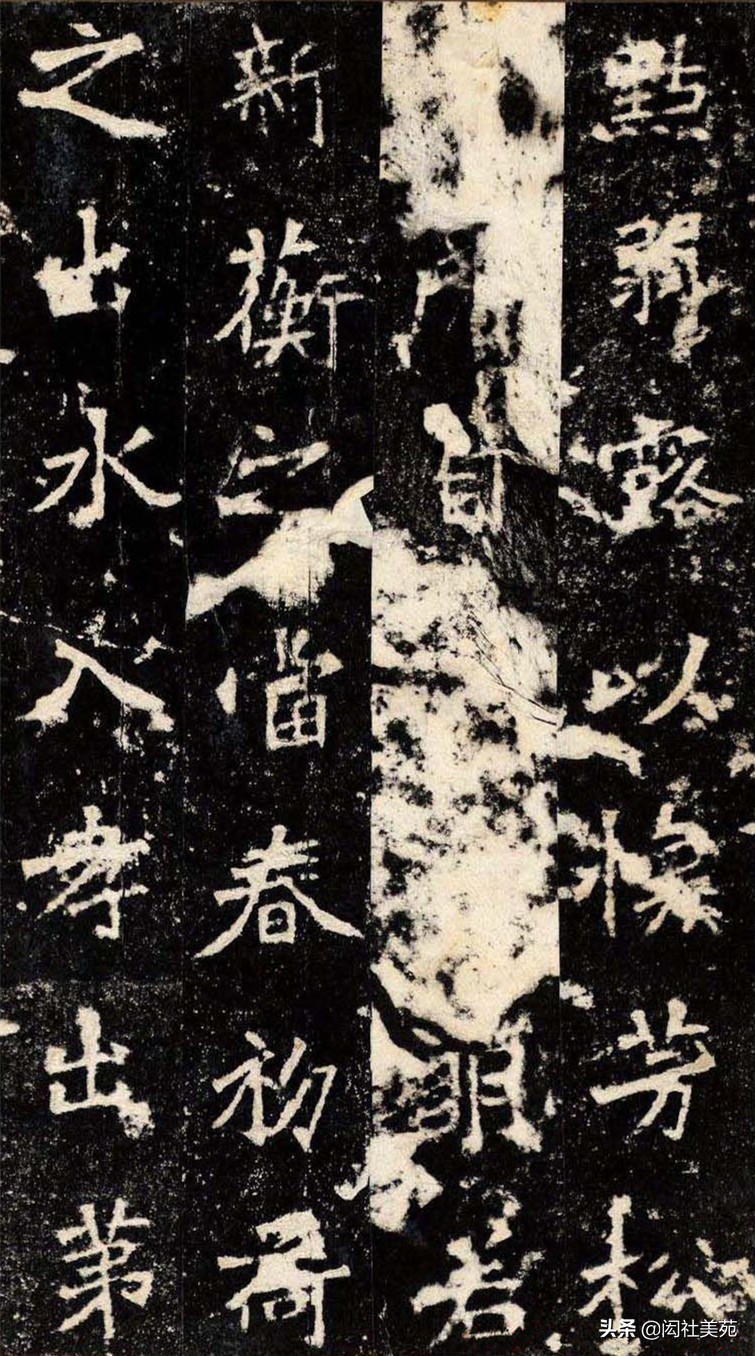 點弱露以懷芳松
自朗若
新蘅之當春初荷
之出水入孝出第
头条 @闳社美苑